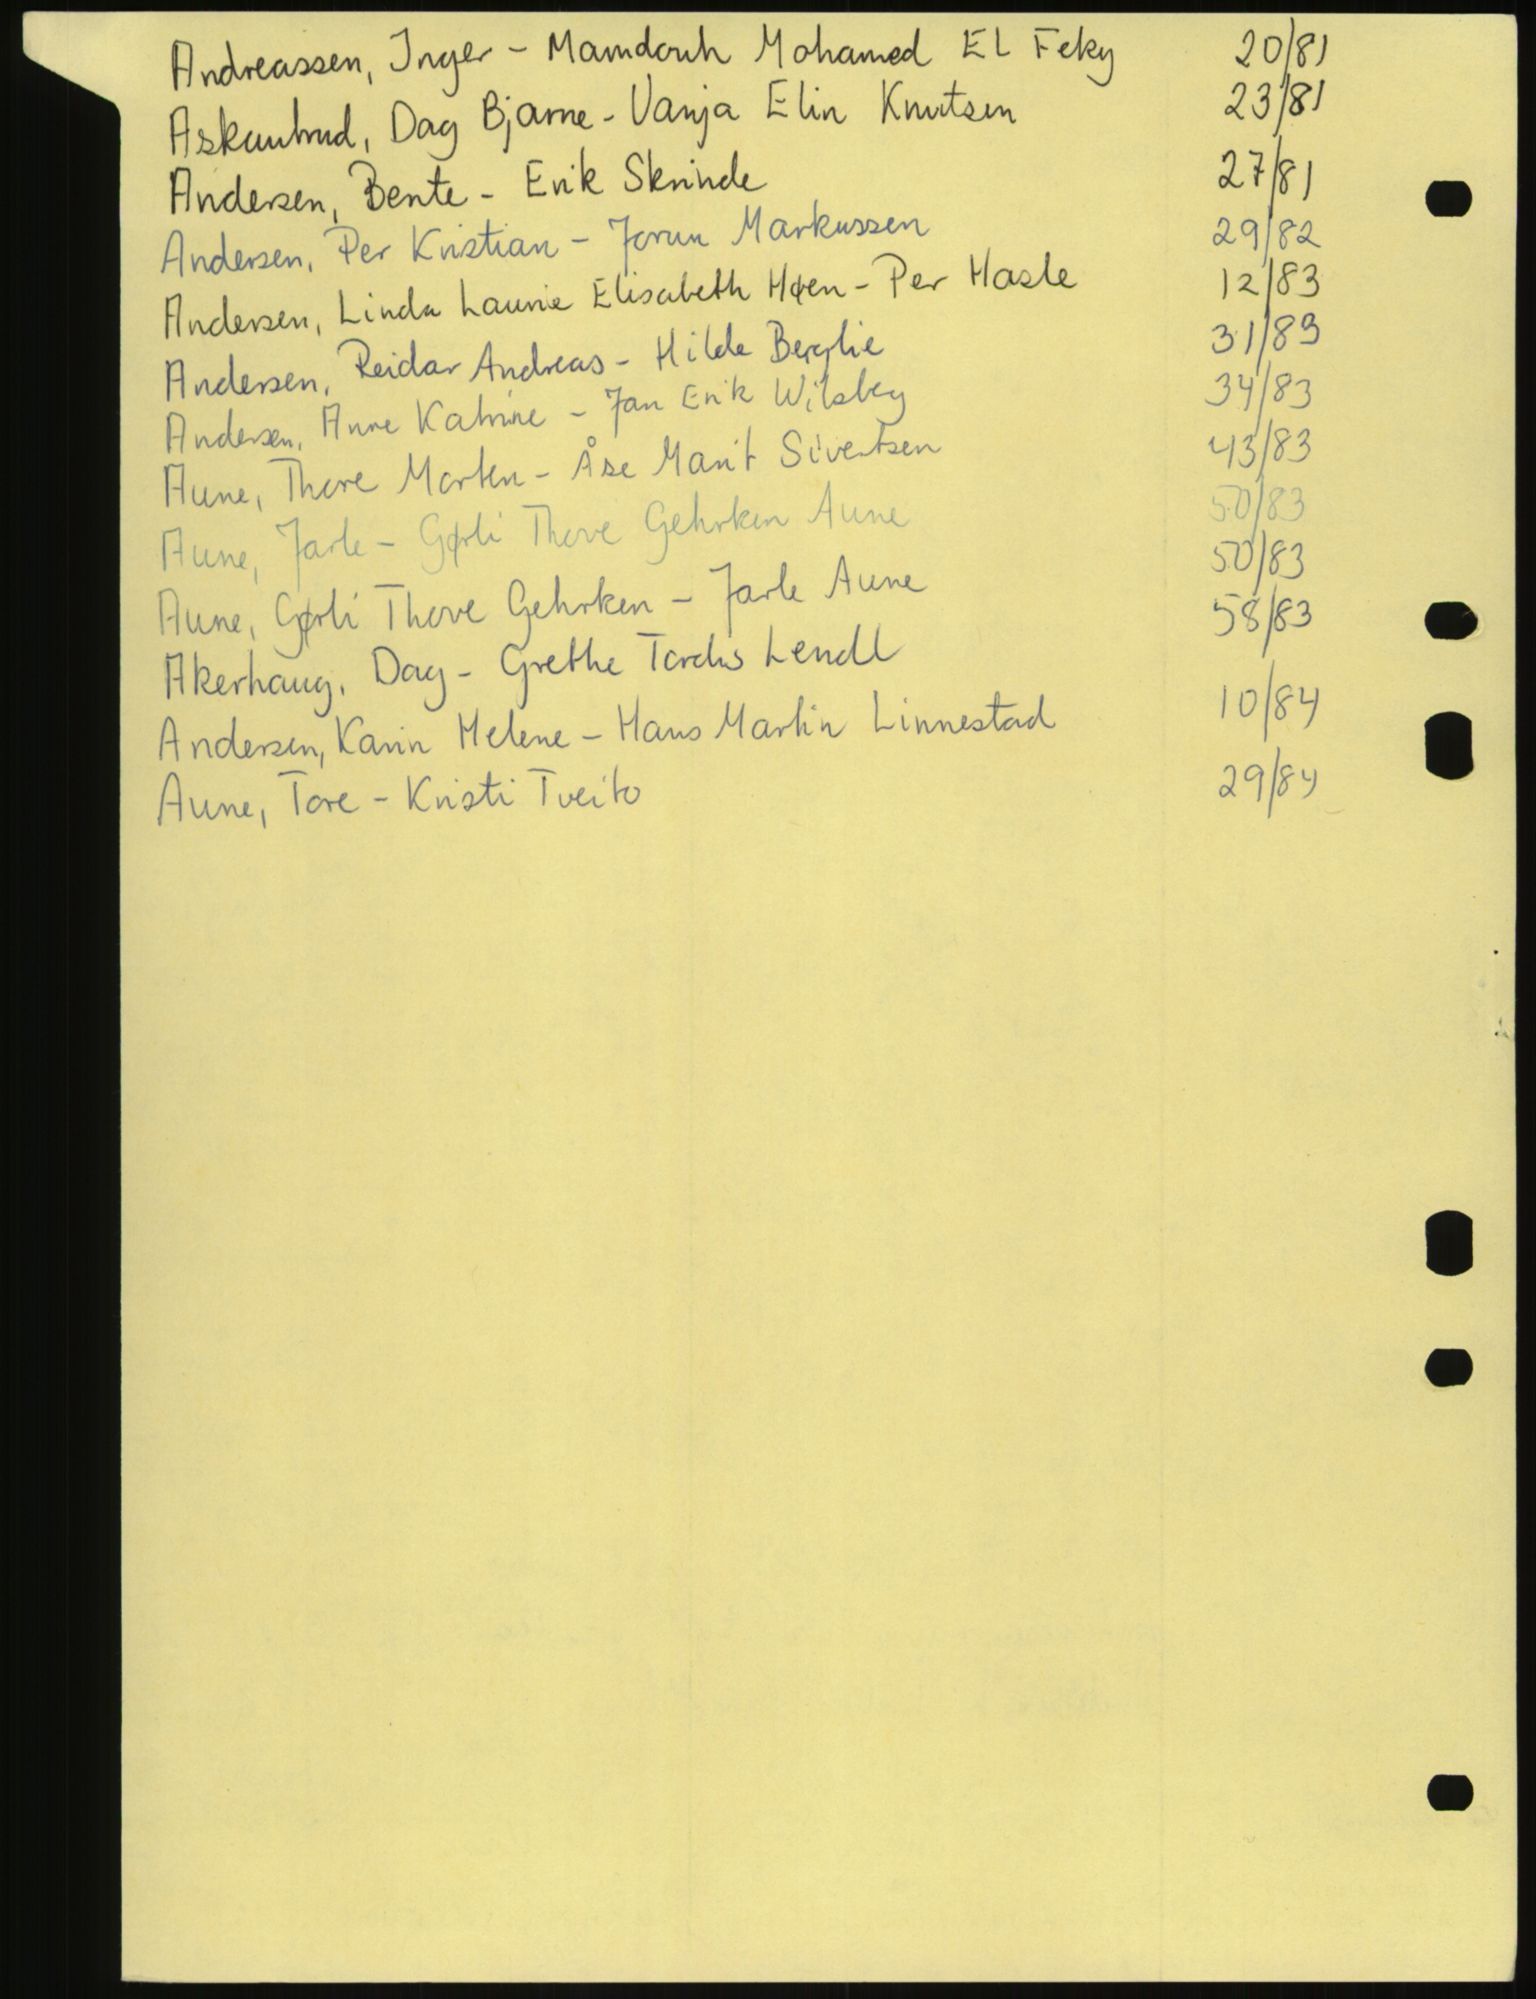 Andreassen, Inger - Mamdouh Mohamed El Feky 20/81
Askautrud, Dag Bjarne - Vanja Elin Knutsen 23/81
Andersen, Bente - Erik Skrinde 27/81
Andersen, Per Kristian - Jorun Markussen 29/82
Andersen, Linda Laurie Elisabeth Høen - Per Hasle 12/83
Andersen, Reidar Andreas - Hilde Berglie 31/83
Andersen, Anne Katrine - Jan Erik Wilsbeg 34/83
Aune, Thore Morten - Åse Marit Sivertsen 43/83
Aune, Jarle - Gørli Thove Gehrken Aune 50/83
Aune, Gørli Thove Gehrken - Jarle Aune 50/83
Akerhaug, Dag - Grethe Tordis Lendl 58/83
Andersen, Karin Helene - Hans Martin Linnestad 10/84
Aune, Tore - Kristi Tveito 29/84